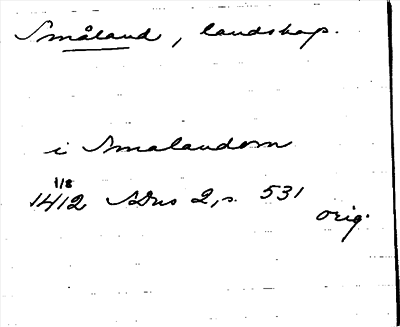 Småland, landskap.
i Smalandom
1/8
1412 SDns 2, s. 531
orig.